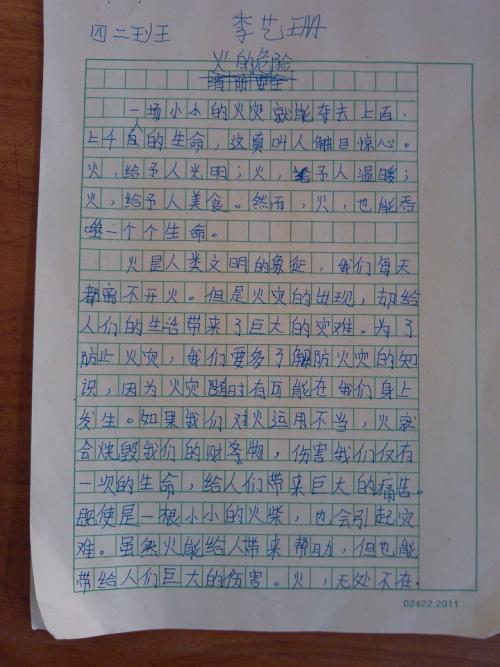 四二班 李艺珊
火的危险
一场小小的火灾就能夺去上百、
上千人的生命，这真叫人触目惊心。
火，给予人光明；火，给予人温暖；
火，给予人美食。然而，火，也能吞
噬一个个生命。
火是人类文明的象征，我们每天
都离不开火。但是火灾的出现，却给
人们的生活带来了巨大的灾难。为了
防止火灾，我们要多了解防火灾的知
识，因为火灾随时有可能在我们身上
发生。如果我们对火运用不当，火就
会烧毁我们的财物，伤害我们仅有
一次的生命，给人们带来巨大的痛苦。
既使是一根小小的火柴，也会引起灾
难。虽然火能给人带来帮助，但也能
带给人们巨大的伤害。火，无处不在.
02422.2011